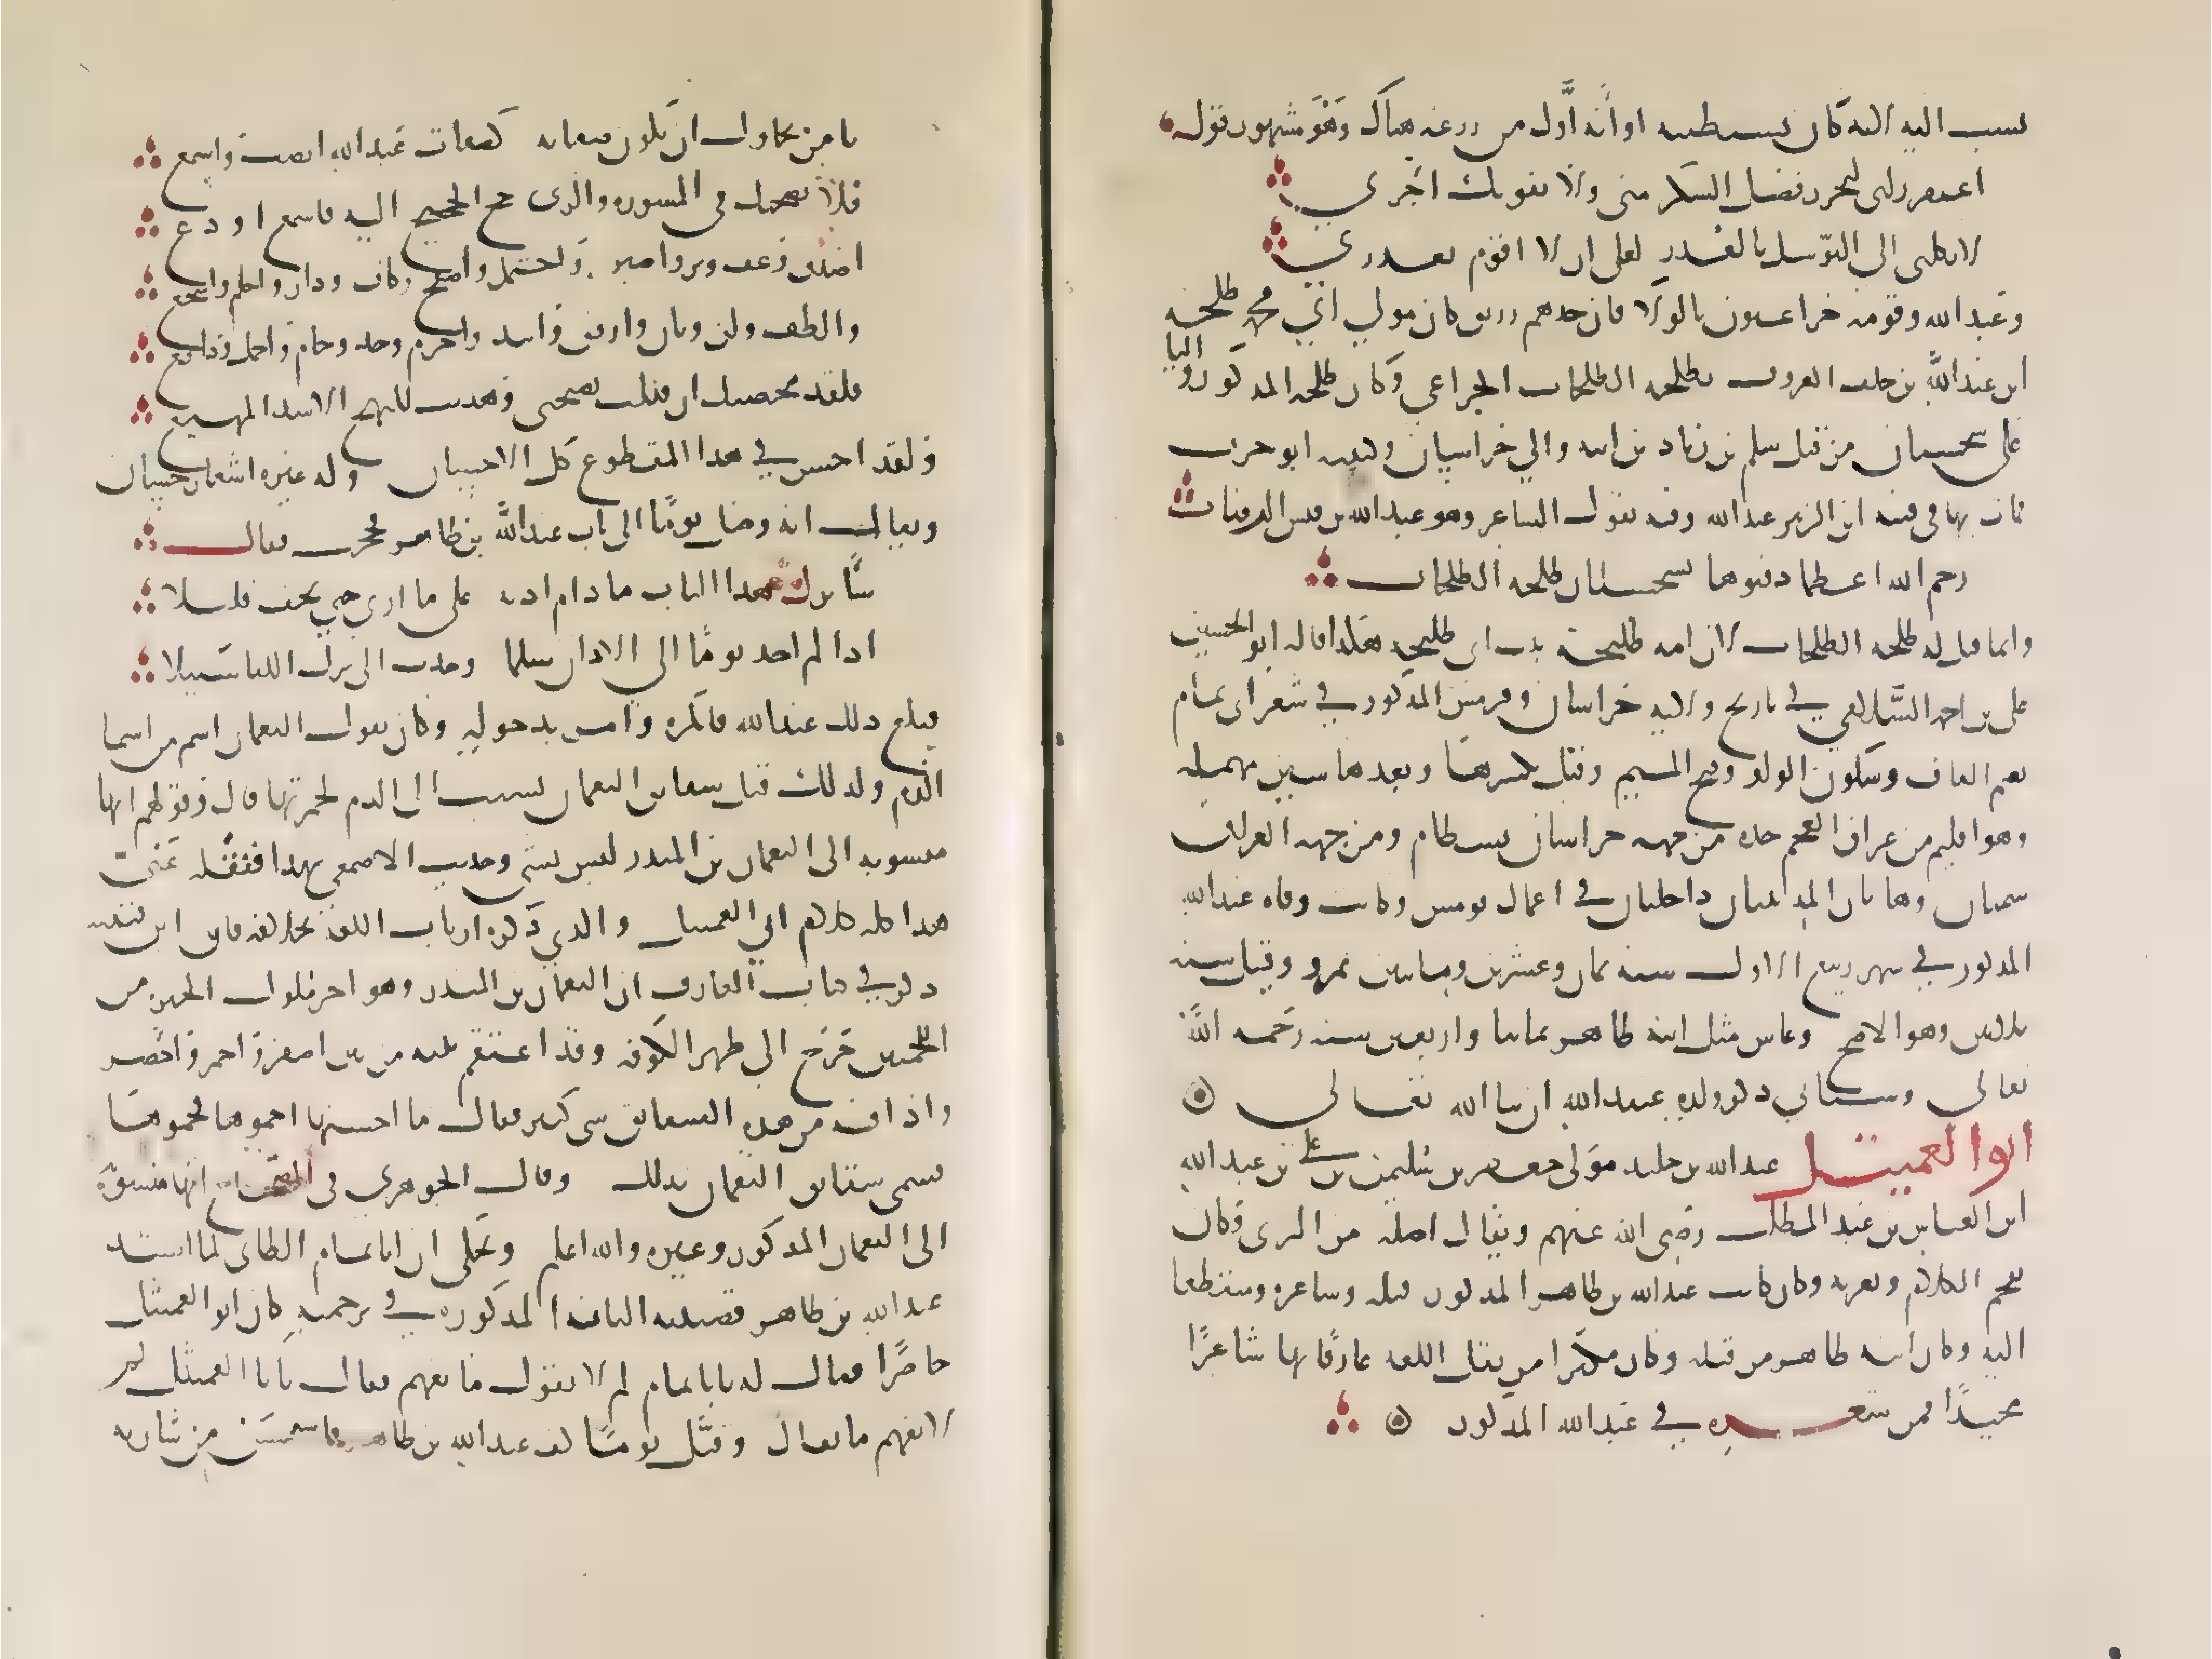 نسب اليه لانه كان يستطيبه او أنه أوّل من زرعه هناك وهو مشهور بقول
اغتفر زلتي لتحرز فضل الشكر مني ولا يفوتك اجري
لا تكلني الى التوسل بالعذر لعلي ان لا اقوم بعذري
وعبد الله وقومه خزاعيون بالولاء فان جدهم رزيق كان مولى ابي محمد طلحة
ابن عبد الله بن خلف المعروف بطلحة الطلحات الخزاعي وكان طلحة المذكور واليا
على سجستان من قبل سلم بن زياد بن ابيه والي خراسان وكنيته ابو حرب
مات بها في فتنة ابن الزبير عبد الله وفيه يقول الشاعر وهو عبد الله بن قيس الرقيات
رحم الله اعظما دفنوها بسجستان طلحة الطلحات
وانما قيل له طلحة الطلحات لان امه طلحة بنت ابي طلحة هكذا قاله ابو الحسين
علي بن احمد السلامي في تاريخ ولاية خراسان وقومس المذكور في شعر ابي تمام
بضم القاف وسكون الواو وفتح الميم وقيل بكسرها وبعدها سين مهملة
وهو اقليم من عراق العجم حده من جهة خراسان بسطام ومن جهة العراق
سمنان وهاتان المدينتان داخلتان في اعمال قومس وكانت وفاة عبد الله
المذكور في شهر ربيع الاول سنة ثمان وعشرين ومايتين بمرو وقيل سنة
ثلاثين وهو الاصح وعاش مثل ابيه طاهر ثمانيا واربعين سنة رحمه الله
تعالى وسياتي ذكر ولده عبيد الله ان شا الله تعالى
ابو العميثل عبد الله بن خليد مولى جعفر بن سليمن بن علي بن عبد الله
ابن العباس بن عبد المطلب رضي الله عنهم ويقال اصله من الري وكان
يفخم الكلام ويعربه وكان كاتب عبد الله بن طاهر المذكور قبله وشاعره ومنقطعا
اليه وكان ابيه طاهر من قبله وكان مكثرا من نقل اللغه عارفا بها شاعرًا
مجيدًا فمن شعره في عبد الله المذكور
يا من يحاول ان تكون صفاته كصفات عبد الله انصت واسمع
فلأنصحنك في المشورة والذي حج الحجيج اليه فاسمع او دع
اصدق وعف وبر واصبر واحتمل واصفح وكاف ودار واحلم واشجع
والطف ولن وتان وارفق واتئد واحزم وجد وحام واحمل وادفع
فلقد محضتك ان قبلت نصيحتي وهديت للنهج الاسد المهيع
ولقد احسن في هذا المقطوع كل الاحسان وله غيره اشعار حسان
ويقال انه وصل يومًا الى باب عبد الله بن طاهر فحجب فقال
سأترك هذا الباب ما دام اذنه على ما ارى حتى يخف قليلا
اذا لم اجد يومًا الى الاذن سلما وجدت الى ترك اللقا سبيلا
فبلغ ذلك عبد الله فانكره وامر بدخوله وكان يقول النعمان اسم من اسما
الدم ولذلك قيل شقايق النعمان نسبت الى الدم لحمرتها قال وقولهم انها
منسوبه الى النعمان بن المنذر ليس بشي وحدثت الاصمعي بهذا فنقله عني
هذا كله كلام ابي العميثل والذي ذكره ارباب اللغه بخلافه فان ابن قتيبه
ذكر في كتاب المعارف ان النعمان بن المنذر وهو اخر ملوك الحيره من
اللخميين خرج الى ظهر الكوفه وقد اعتم نبته من بين اصفر واحمر واخضر
واذا فيه من هذه الشقايق شي كثير فقال ما احسنها احموها فحموها
فسمي شقايق النعمان بذلك وقال الجوهري في الصحاح انها منسوبة
الى النعمان المذكور وغيره والله اعلم وحكى ان ابا تمام الطائي لما انشد
عبد الله بن طاهر قصيدته البائيه المذكوره في ترجمته كان ابو العميثل
حاضرًا فقال له يا ابا تمام لم لا تقول ما يفهم فقال يا ابا العميثل لم
لا تفهم ما يقال وقبّل يومًا كف عبد الله بن طاهر فاستخشن من شاربه